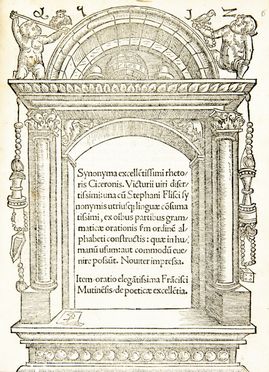 Synonyma excellētissimi rhetoris
ris Ciceronis. Victurii uiri diser-
tissimi: una cū Stephani Flisci sy
nonymis utriusq; linguæ cōsuma
tissimi, ex oībus partibus gram
maticæ orationis fm ordinē al-
phabeti constructis: quæ in hu
manū usum: aut commodū eue
nire possūt. Nouiter impressa.
Item oratio elegātissima Frācisci
Mutinēsis de poeticæ excellētia.